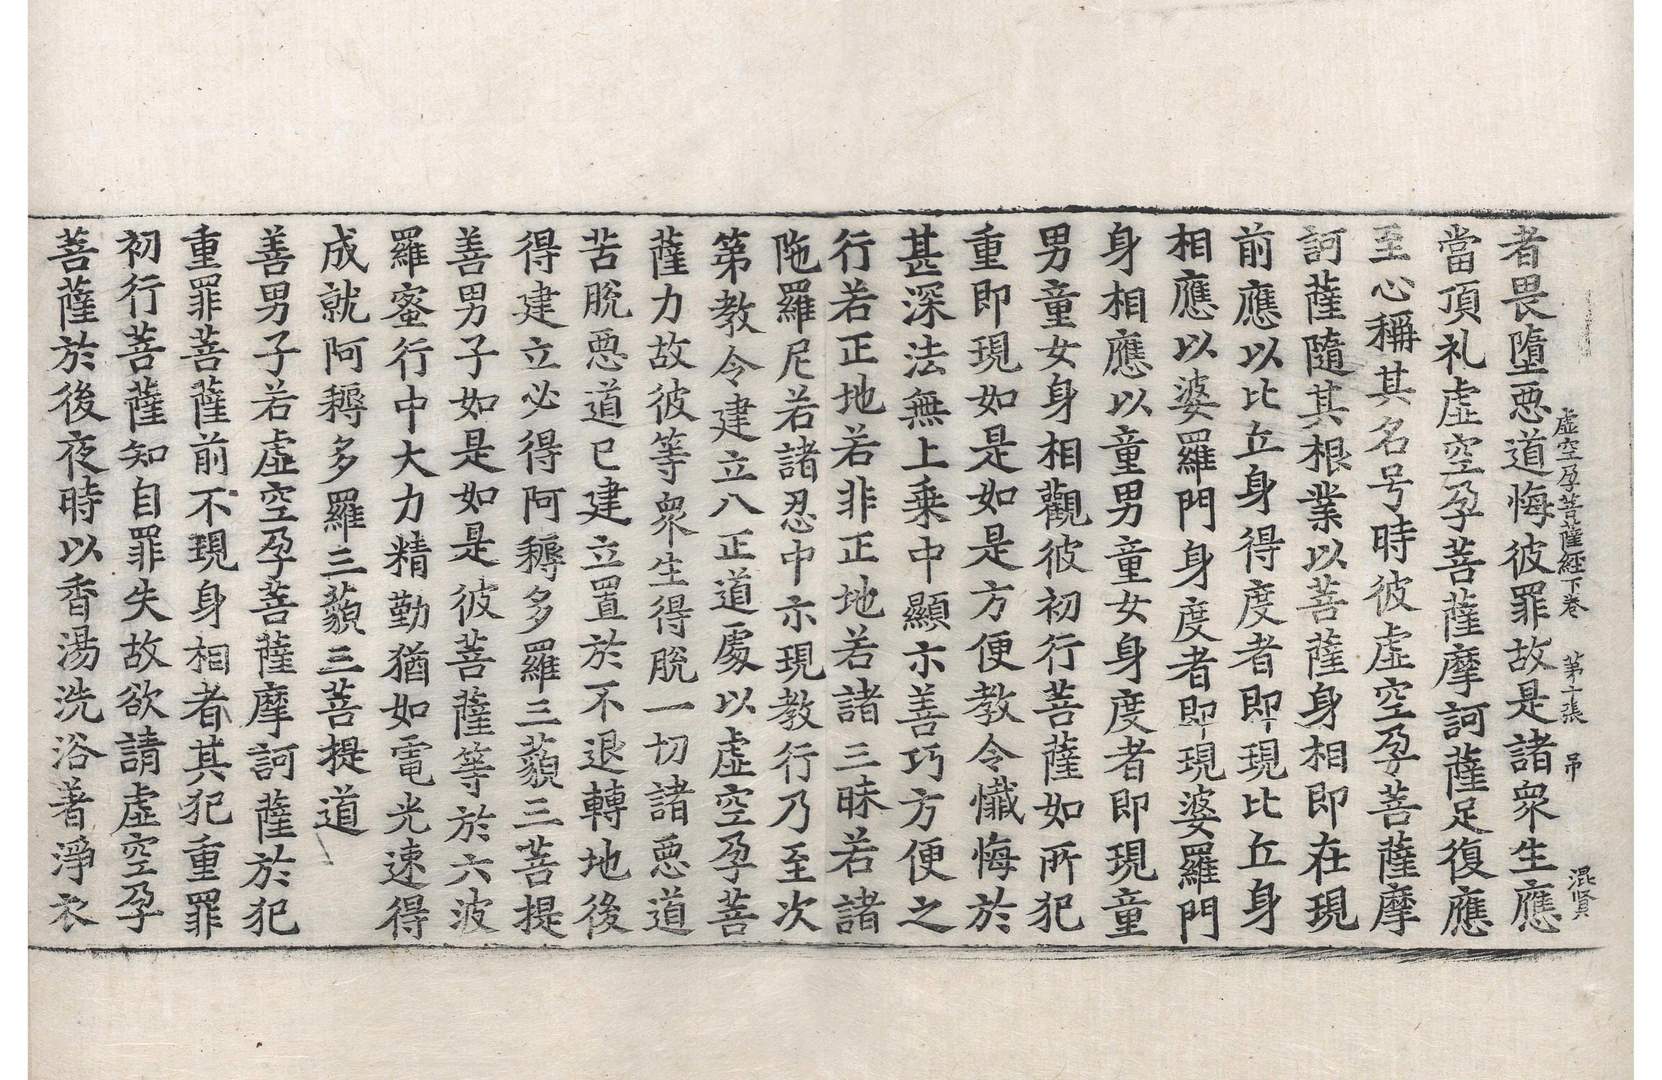 虛空孕菩薩經下卷　第十張　吊　混賢
者畏墮惡道悔彼罪故是諸衆生應
當頂礼虛空孕菩薩摩訶薩足復應
至心稱其名号時彼虛空孕菩薩摩
訶薩隨其根業以菩薩身相即在現
前應以比丘身得度者即現比丘身
相應以婆羅門身度者即現婆羅門
身相應以童男童女身度者即現童
男童女身相觀彼初行菩薩如所犯
重即現如是如是方便教令懺悔於
甚深法無上乗中顯示善巧方便之
行若正地若非正地若諸三昧若諸
陁羅尼若諸忍中示現教行乃至次
第教令建立八正道處以虛空孕菩
薩力故彼等衆生得脫一切諸惡道
苦脫惡道已建立置於不退轉地後
得建立必得阿耨多羅三藐三菩提
善男子如是如是彼菩薩等於六波
羅蜜行中大力精勤猶如電光速得
成就阿耨多羅三藐三菩提道
善男子若虛空孕菩薩摩訶薩於犯
重罪菩薩前不現身相者其犯重罪
初行菩薩知自罪失故欲請虛空孕
菩薩於後夜時以香湯洗浴著淨衣